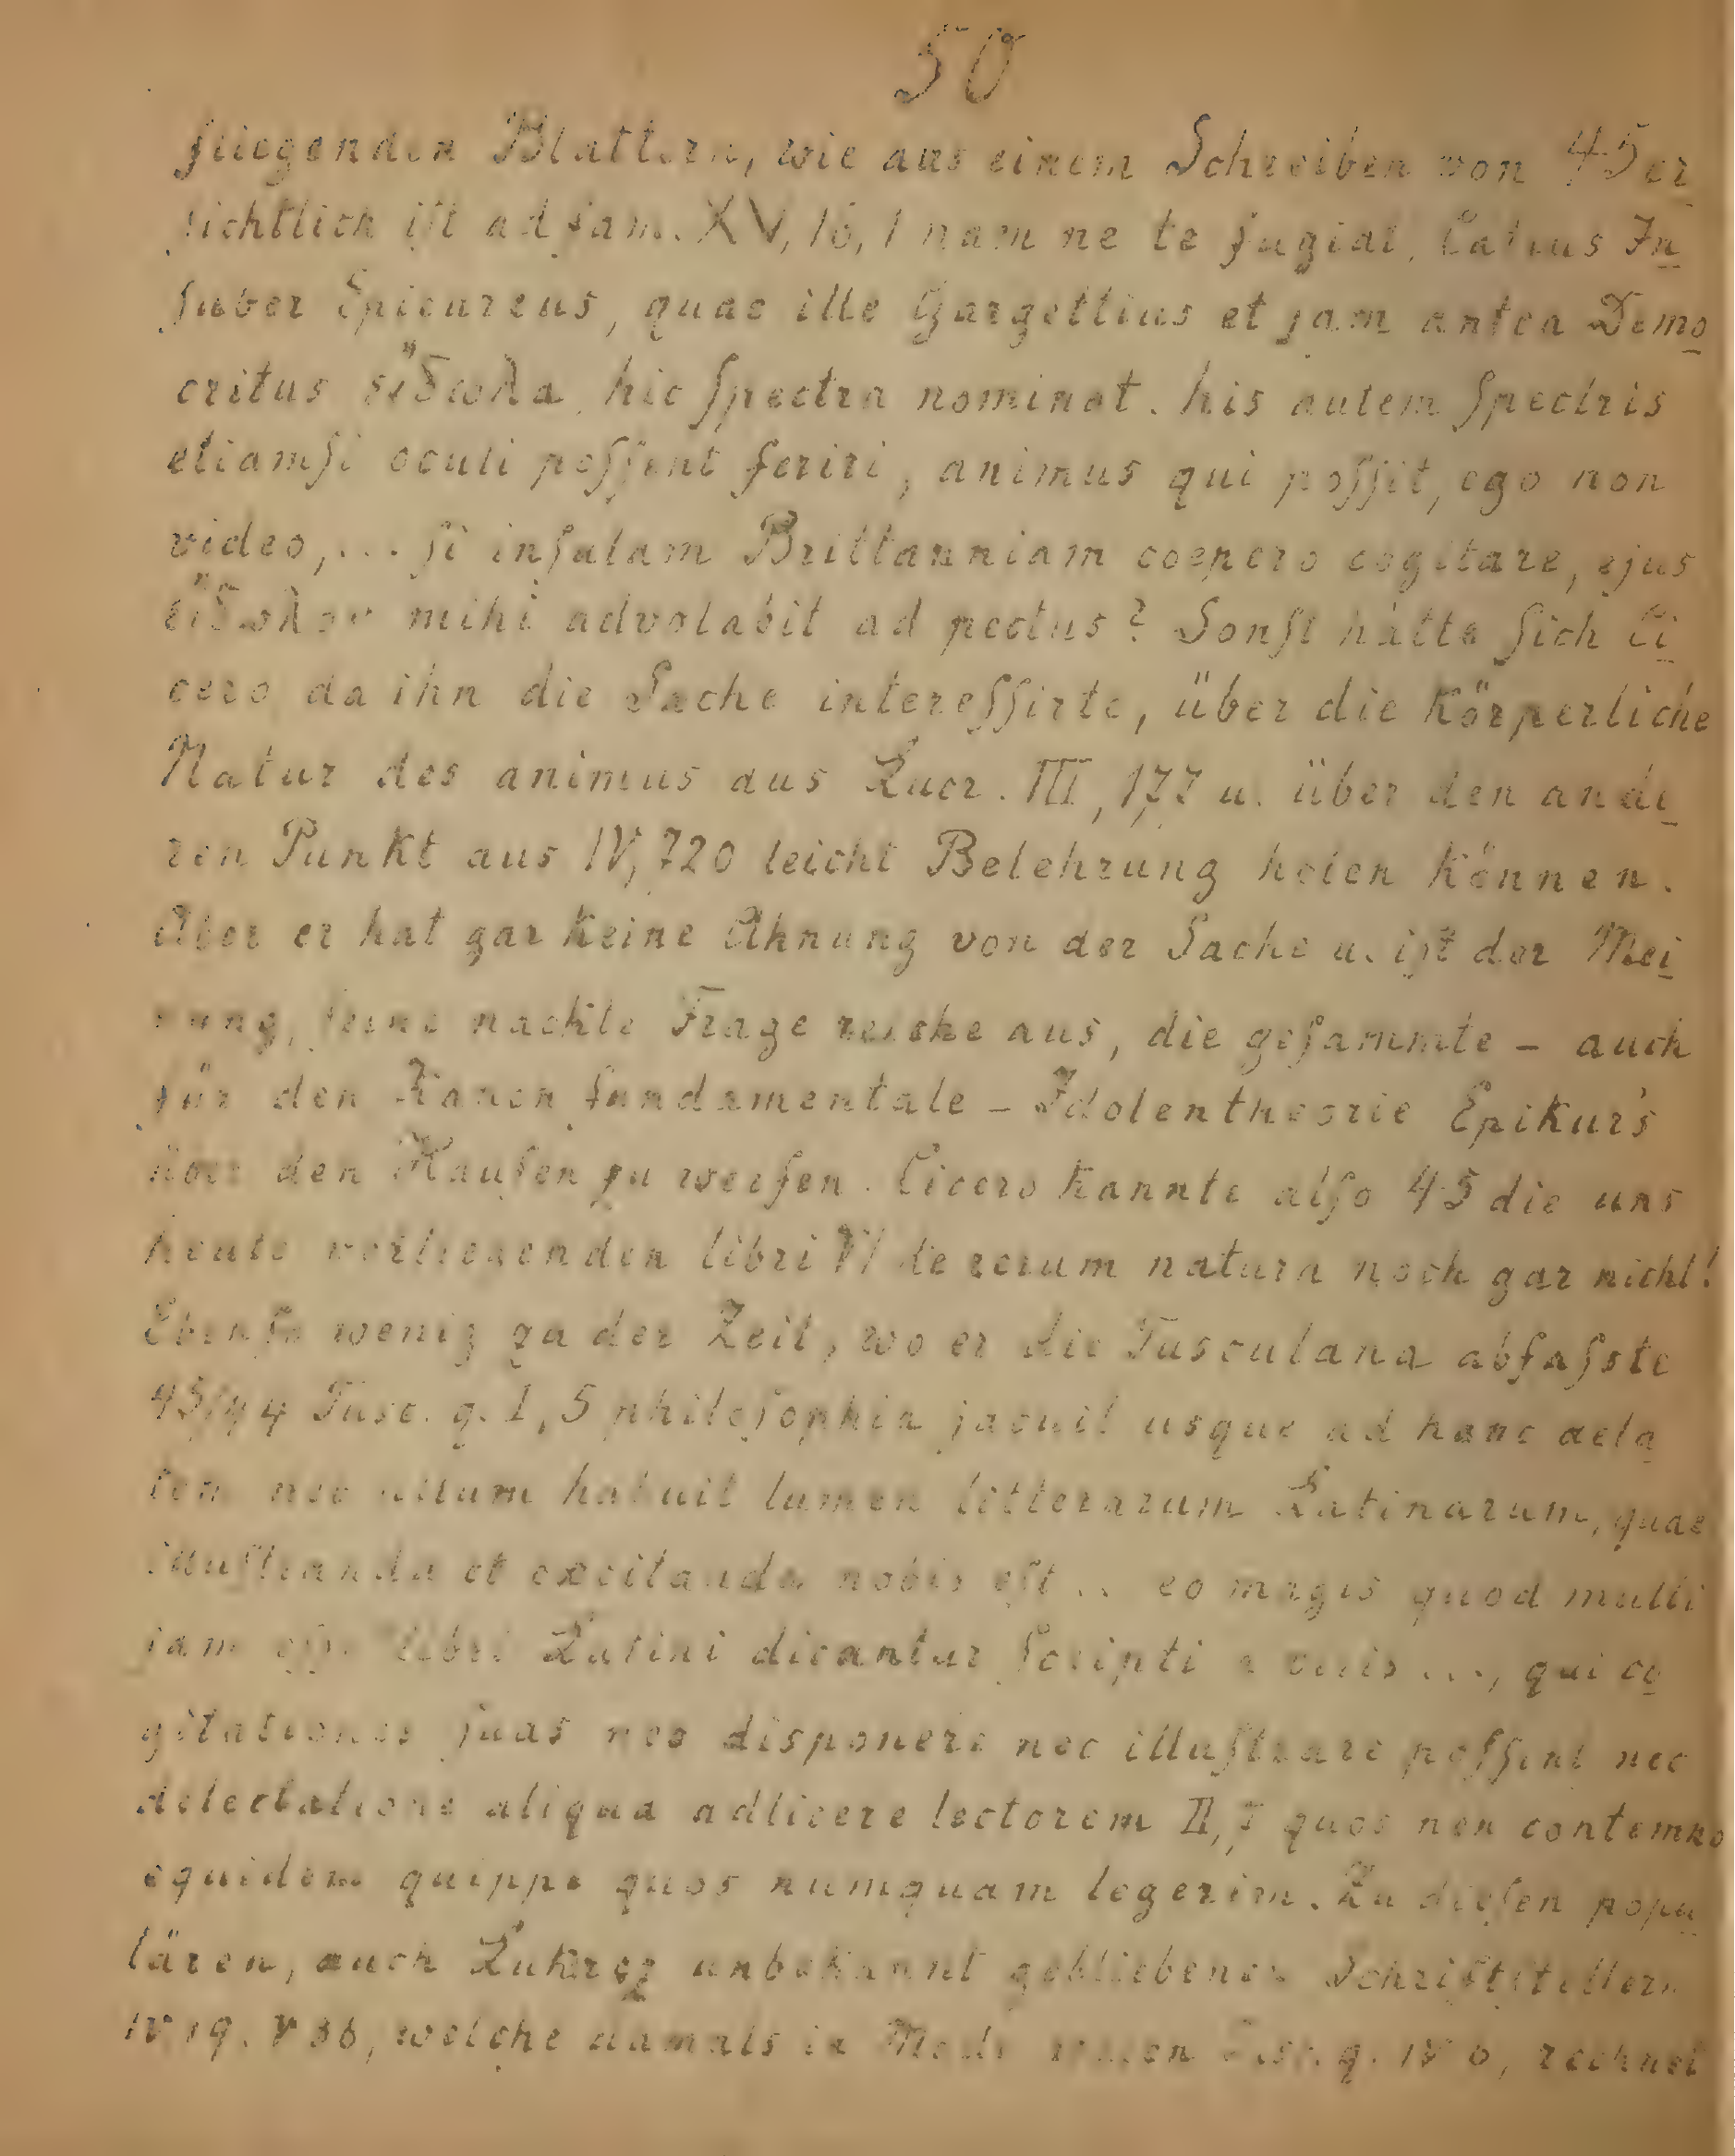 50
fliegenden Blattern, wie aus einem Schreiben von 45 er
sichtlich ist ad fam. XV, 16, 1 nam ne te fugiat, Catius In
suber Epicureus, quae ille Gargettius et jam antea Demo
critus εἴδωλα, hic spectra nominat. his autem spectris
etiamsi oculi possent feriri, animus qui possit, ego non
video,... si insulam Brittanniam coepero cogitare, ejus
εἴδωλον mihi advolabit ad pectus? Sonst hätte sich Ci
cero da ihn die Sache interessirte, über die Körperliche
Natur des animus aus Lucr. III, 177 u. über den ande
ren Punkt aus IV, 720 leicht Belehrung holen Können.
Aber er hat gar Keine Ahnung von der Sache u. ist der Mei
nung, seine nackte Frage reiche aus, die gesammte – auch
für den Kanon fundamentale – Idolentheorie Epikur's
über den Haufen zu werfen. Cicero Kannte also 45 die uns
heute vorliegenden libri VI de rerum natura noch gar nicht!
Ebenso wenig zu der Zeit, wo er die Tusculana abfasste
45/44 Tusc. q. I, 5 philosophia jacuit usque ad hanc aeta
tem nec ullum habuit lumen litterarum Latinarum, quae
illustranda et excitanda nobis est .. eo magis quod multi
iam esse libri Latini dicantur scripti a viris ..., qui co
gitationes suas nec disponere nec illustrare possent nec
delectatione aliqua adlicere lectorem II, 7 quos non contemno
equidem quippe quos numquam legerim. Zu diesen popu
lären, auch Lukrez unbekannt gebliebenen Schriftstellern
IV 19. V 336, welche damals in Mode waren Tusc. q. IV 6, rechnet